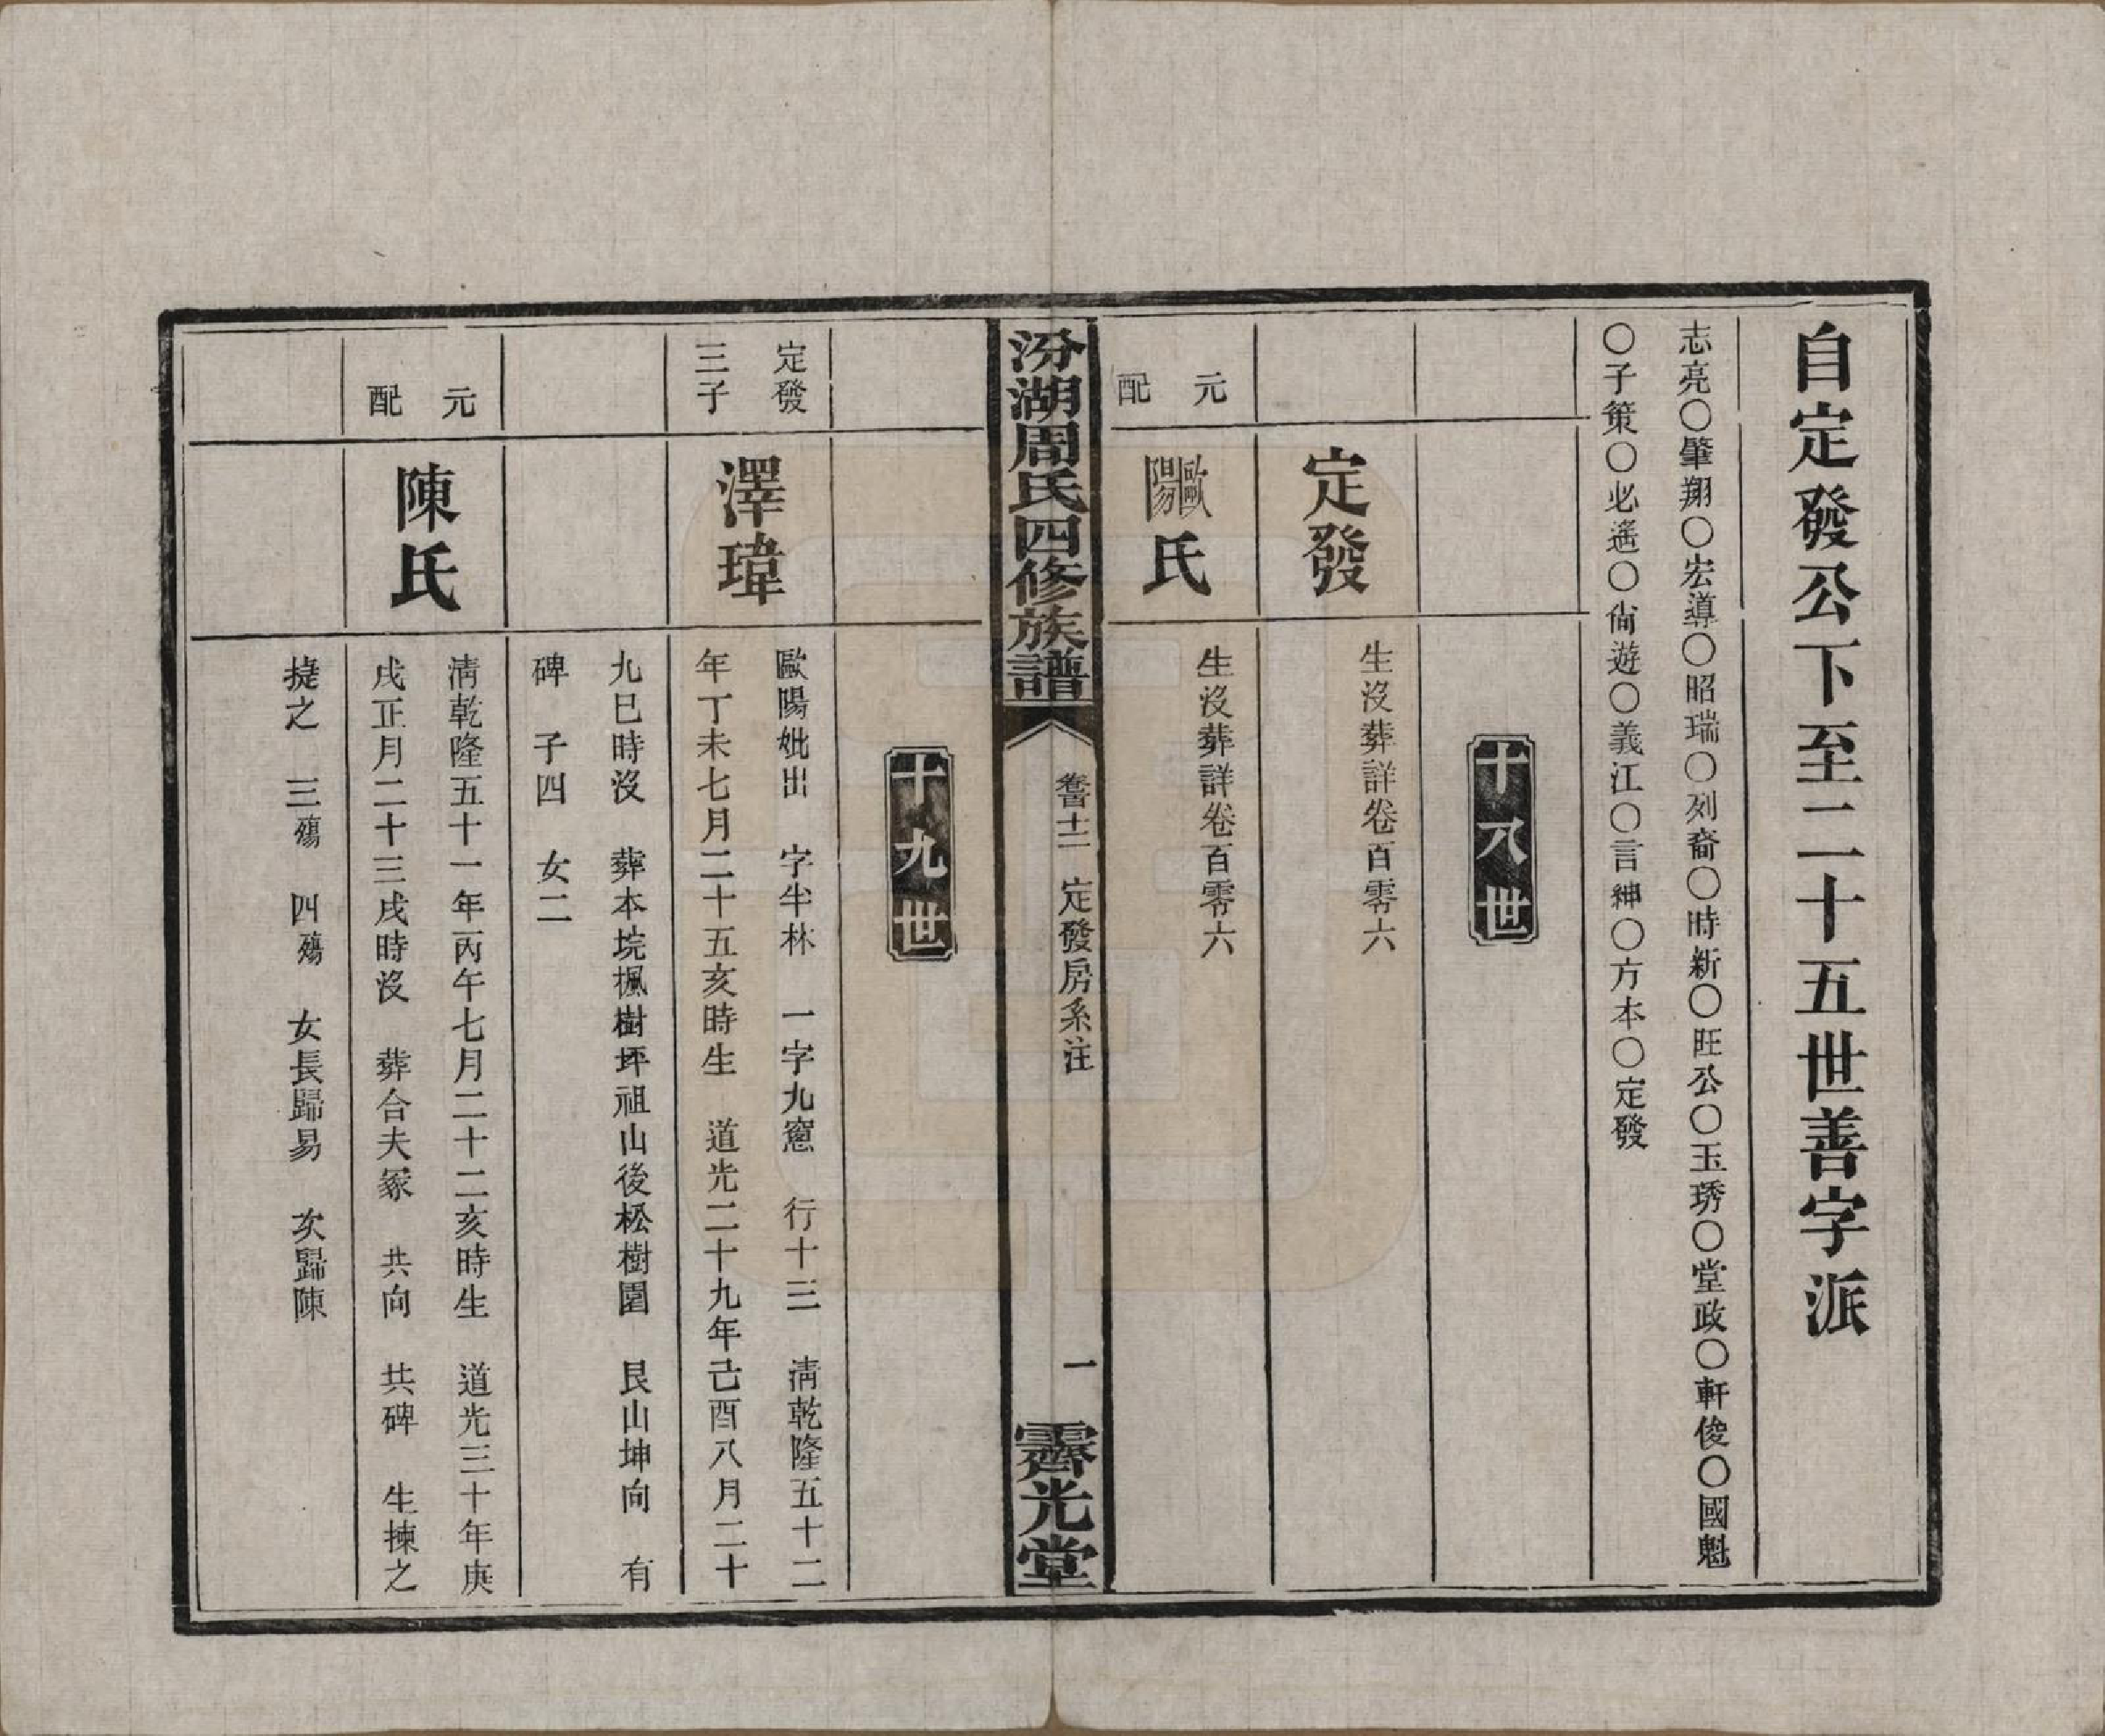 自定發公下至二十五世善字派
志亮〇肇翔〇宏導〇昭瑞〇列裔〇時新〇旺公〇玉琇〇堂政〇軒俊〇國魁
〇子策〇必遙〇尙遊〇義江〇言紳〇方本〇定發
十八世
定發
生沒葬詳卷百零六
元配
歐陽氏
生沒葬詳卷百零六
汾湖周氏四修族譜
定發房系注
一
霽光堂
十九世
定發三子
澤瑋
歐陽妣出　字半林　一字九窻　行十三　淸乾隆五十二
年丁未七月二十五亥時生　道光二十九年己酉八月二十
九巳時沒　葬本垸楓樹坪祖山後松樹園　艮山坤向　有
碑　子四　女二
元配
陳氏
淸乾隆五十一年丙午七月二十二亥時生　道光三十年庚
戌正月二十三戌時沒　葬合夫冢　共向　共碑　生揀之
㨗之　三殤　四殤　女長歸易　次歸陳